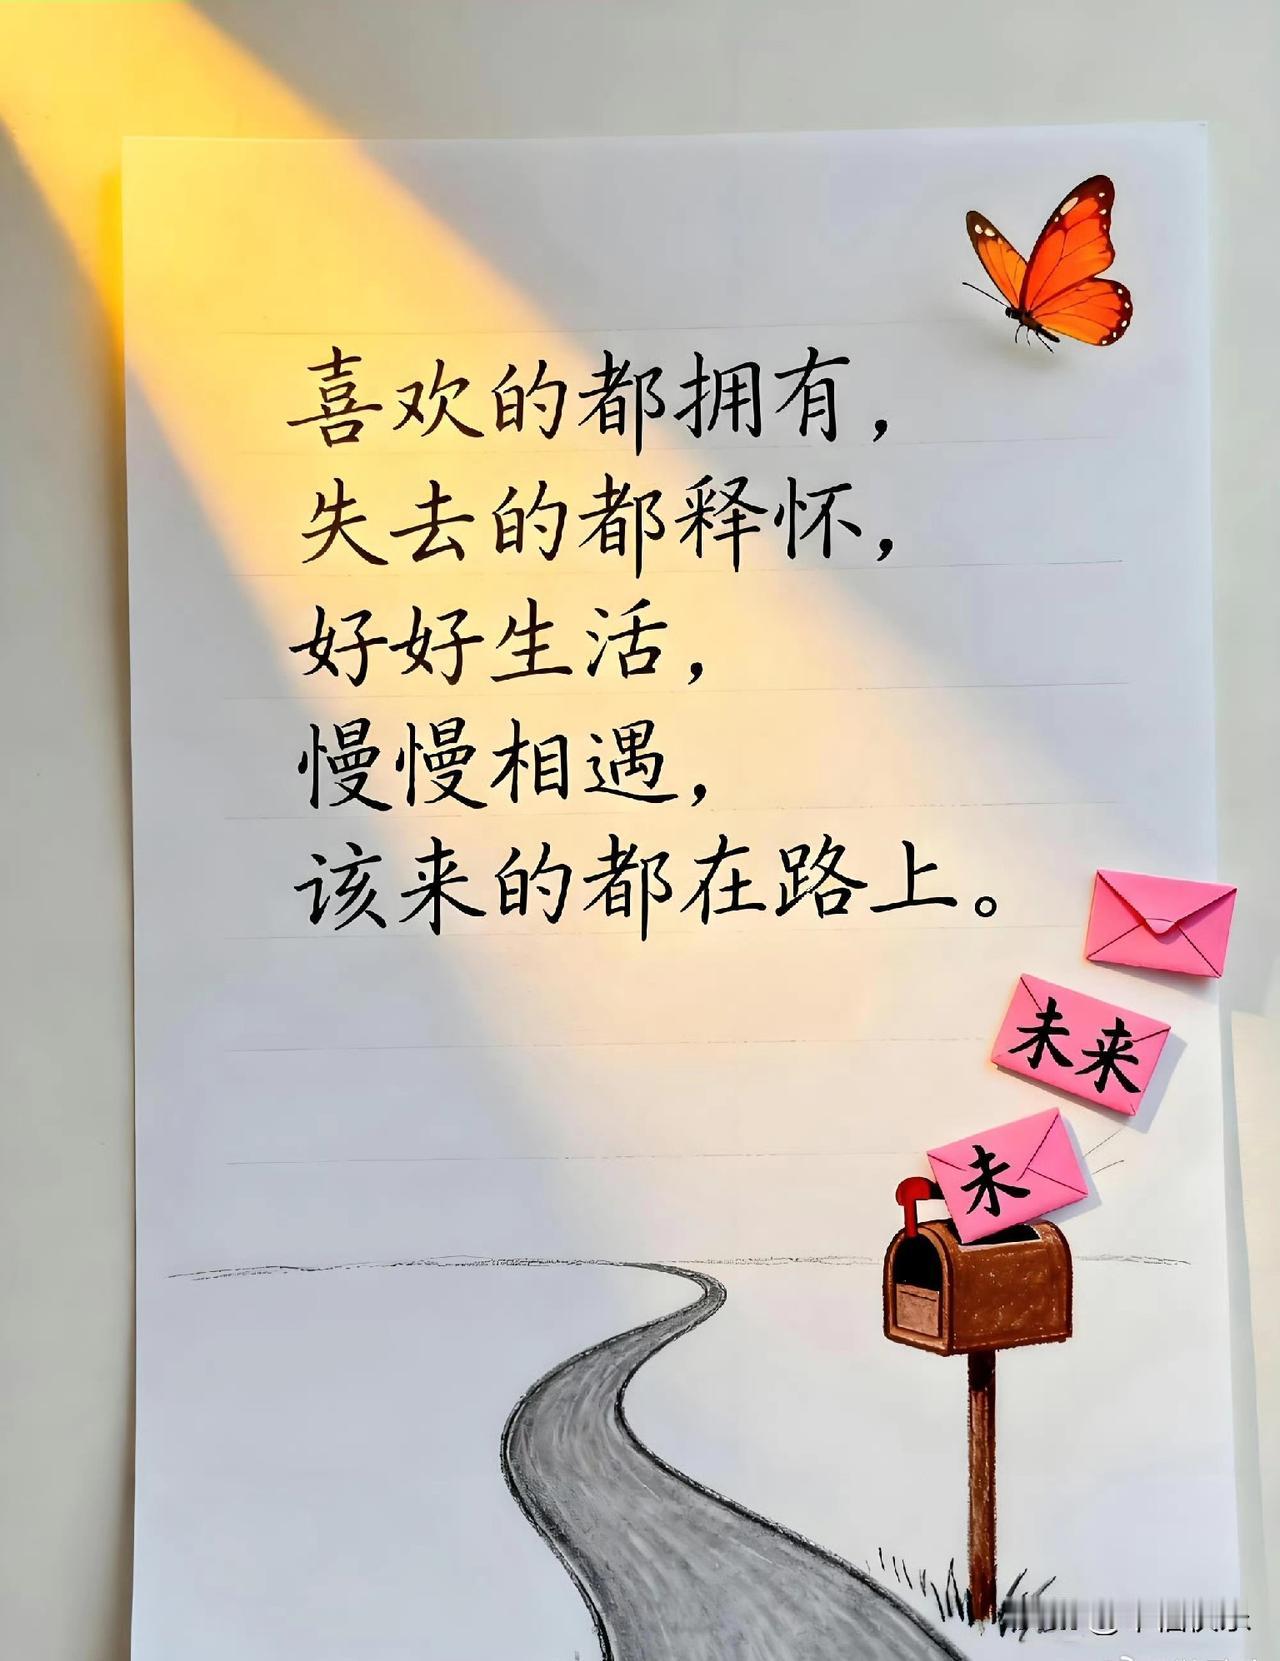 喜欢的都拥有，
失去的都释怀，
好好生活，
慢慢相遇，
该来的都在路上。
未来
未